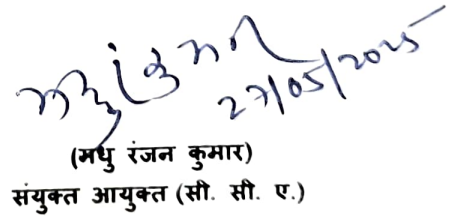 27/05/2025
(मधु रंजन कुमार)
संयुक्त आयुक्त (सी. सी. ए.)